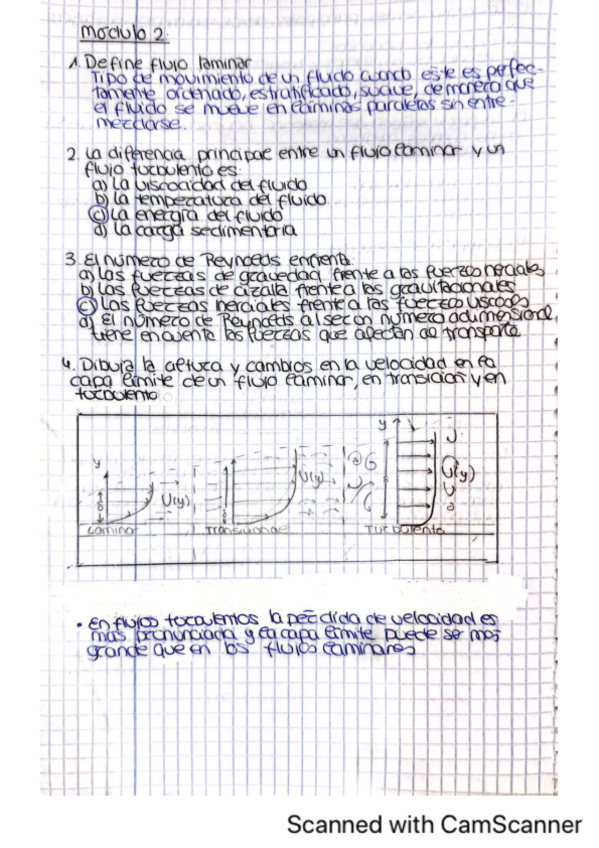 Modulo 2.
1. Define flujo laminar
Tipo de movimiento de un fluido cuando este es perfec-
tamente ordenado, estratificado, suave, de manera que
el fluido se mueve en láminas paralelas sin entre-
mezclarse.
2. La diferencia principal entre un flujo laminar y un
flujo turbulento es:
a) La viscocidad del fluido
b) La temperatura del fluido
c) La energía del fluido
d) La carga sedimentaria
3. El número de Reynolds enfrenta:
a) Las fuerzas de gravedad frente a las fuerzas inerciales
b) Las fuerzas de cizalla frente a las gravitacionales
c) Las fuerzas inerciales frente a las fuerzas viscosas
d) El número de Reynolds al ser un número adimensional,
tiene en cuenta las fuerzas que afectan al transporte
4. Dibuja la altura y cambios en la velocidad en la
capa límite de un flujo laminar, en transición y en
turbulento
y
U(y)
Laminar
U(y)
Transicional
y
U(y)
Turbulento
• En flujos turbulentos la pérdida de velocidad es
más pronunciada y la capa límite puede ser más
grande que en los flujos laminares
Scanned with CamScanner